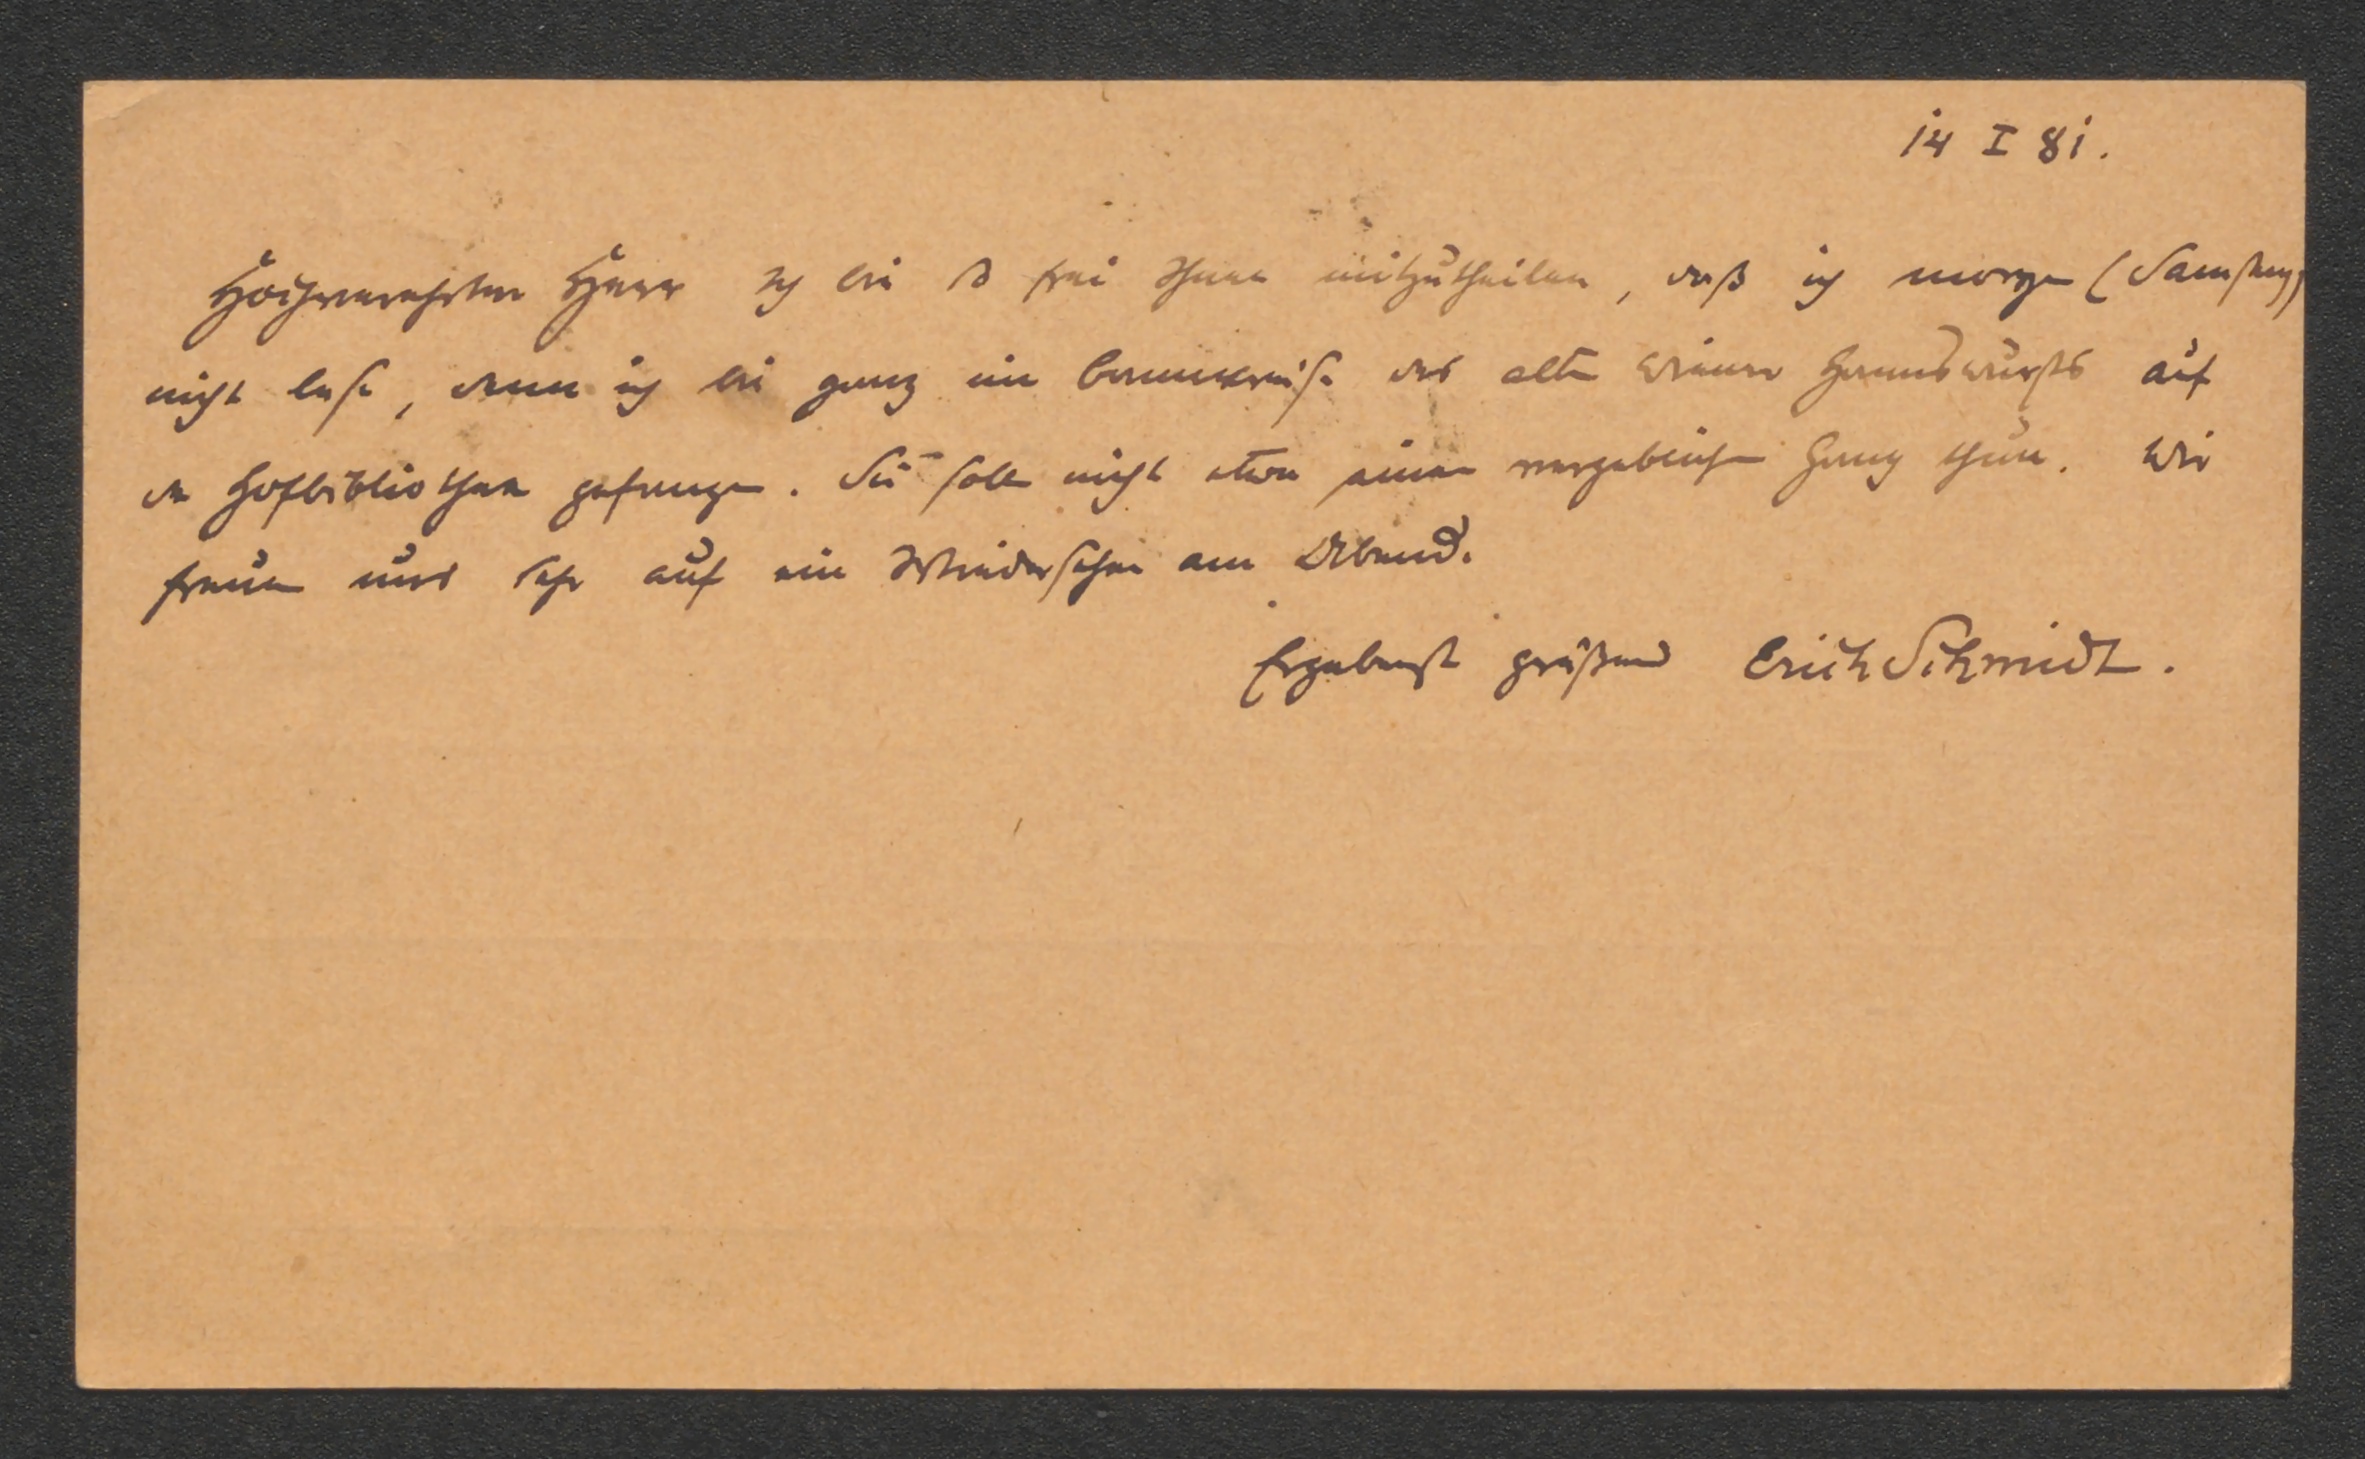 14 I 81.
Hochverehrter Herr Ich bin so frei Ihnen mitzutheilen, daß ich morgen (Samstag)
nicht lese, denn ich bin ganz im Bannkreise des alten Wiener Hanswursts auf
der Hofbibliothek gefangen. Sie sollen nicht etwa einen vergeblichen Gang thun. Wir
freuen uns sehr auf ein Wiedersehen am Abend.
Ergebenst grüßend Erich Schmidt.